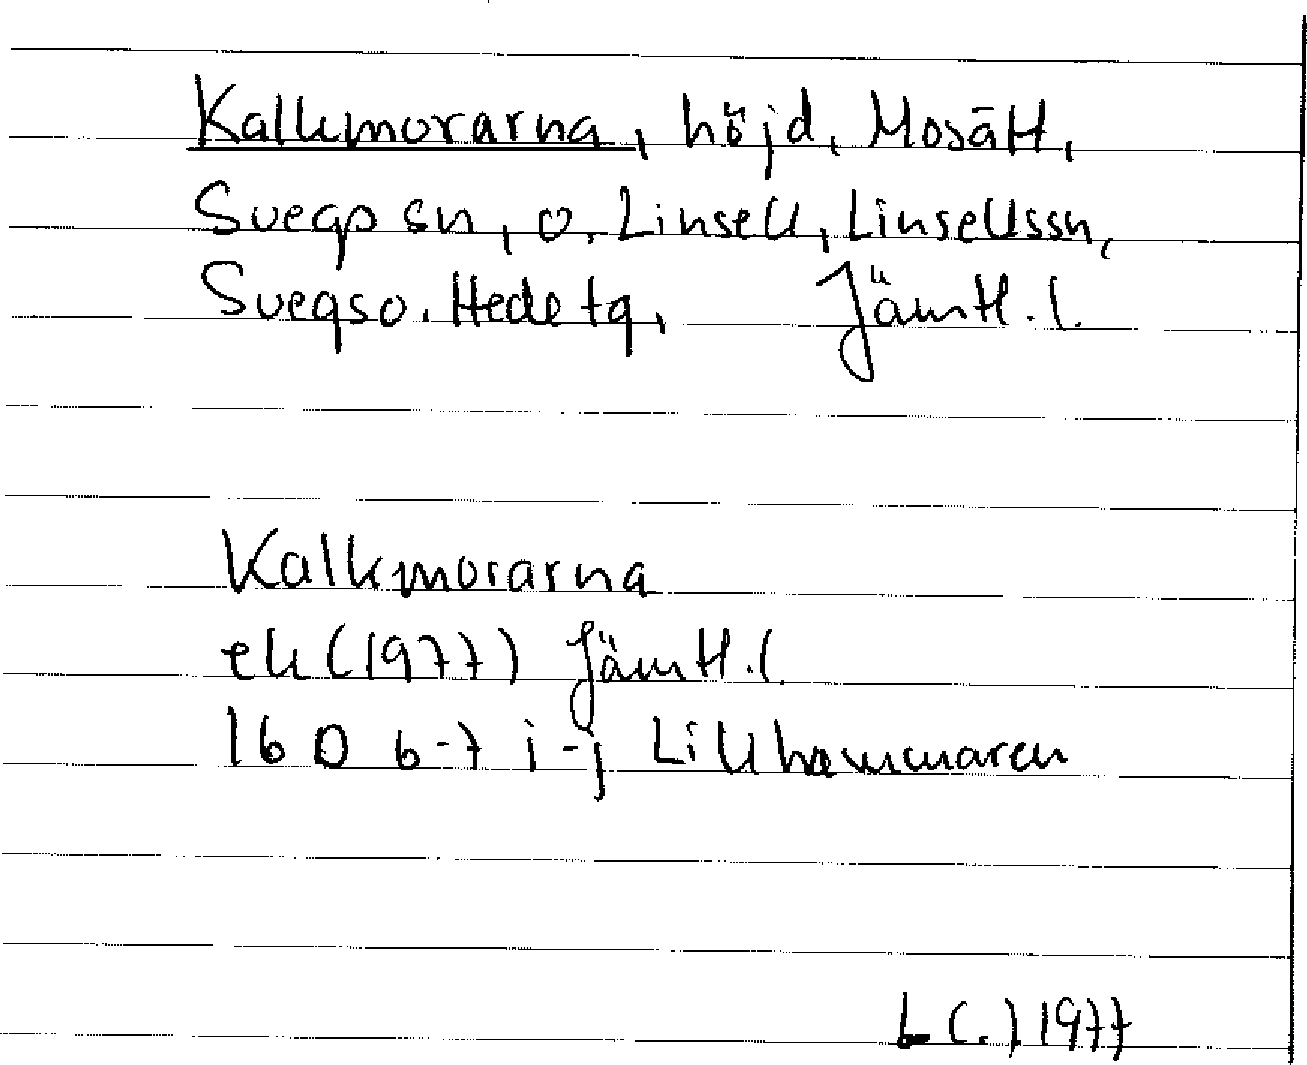 Kalkmorarna, höjd, Mosätt,
Svegs sn, o. Linsell, Linsells sn,
Svegs o. Hede tg, Jämtl. l.
Kalkmorarna
ek (1977) Jämtl. l.
16 D 6-7 i-j Lillhammaren
1977